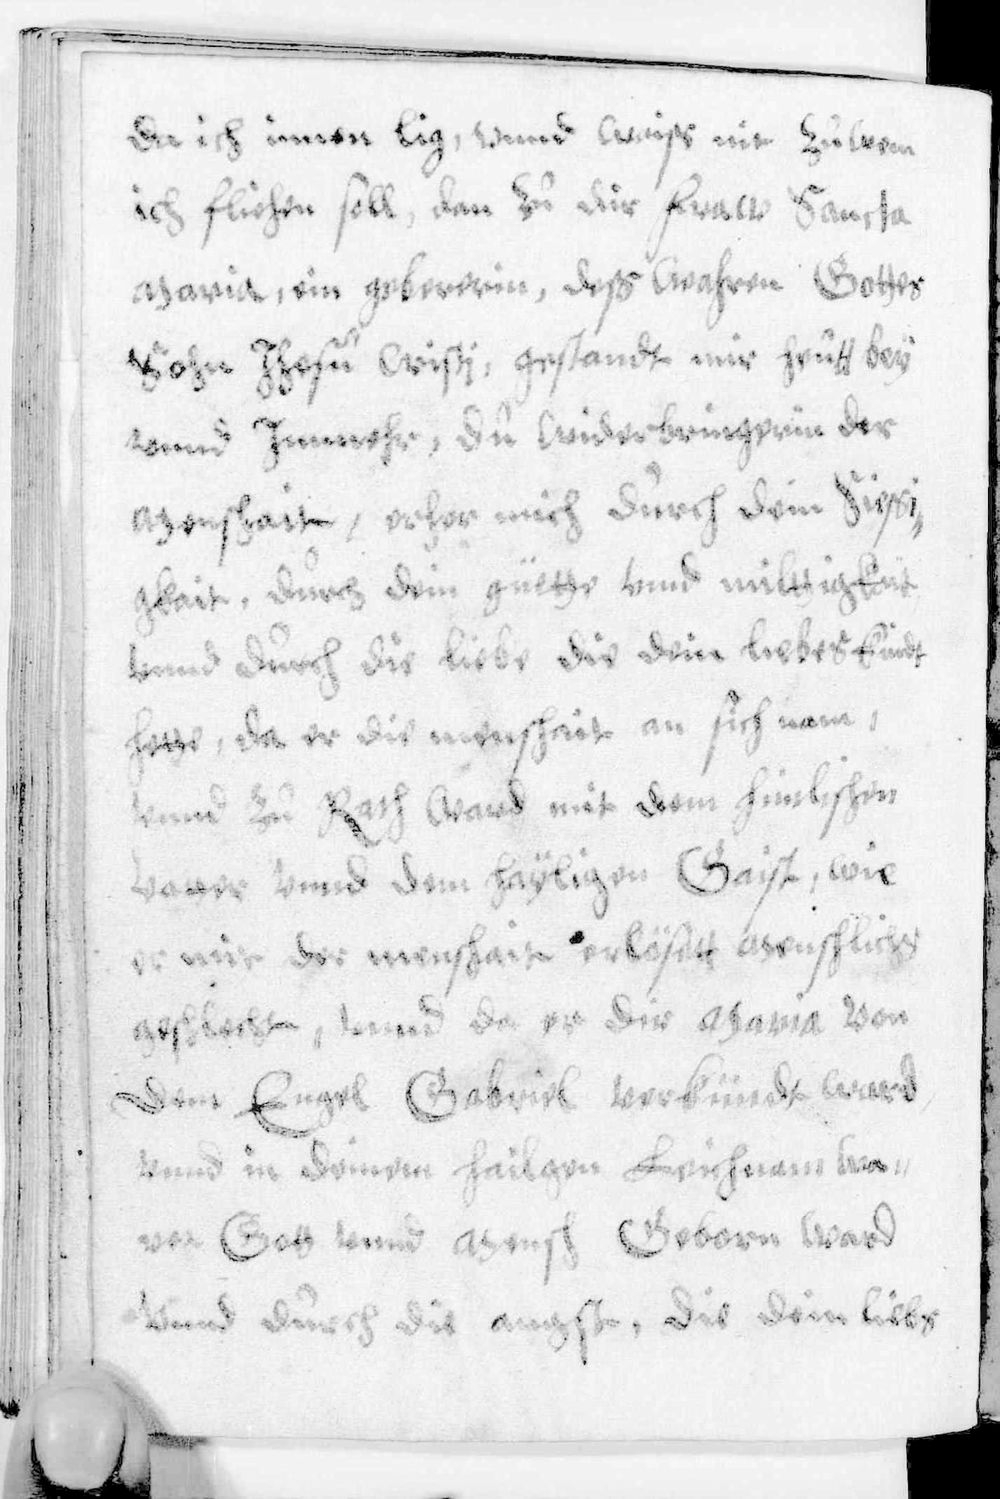 da ich innen lig, vnnd waiss nit zu wem
ich fliehen soll, dan zu dir fraw Sancta
Maria, ein gebererin, dess wahren Gottes
Sohn Jhesu Cristj, gestandt mir heutt beÿ
vnnd Immehr, du widerbringerin der
Menshait, erher mich durch dein Siessi„
gkait, durch dein güette vnd milttigkait
vnnd durch die liebe die dein liebes kindt
hette, da er die menshait an sich nam,
vnnd zu Rath ward mit dem himlishen
vatter vnnd dem haÿligen Gaist, wie
er mit der menshait erlösett Menshlichs
geshlecht, vnnd da er dir Maria von
dem Engel Gabriel verkündt ward,
vnnd in deinem hailgen Leichnam wa„
rer Gott vnnd Mensh Geborn ward
vnnd durch die angst, die dein liebs